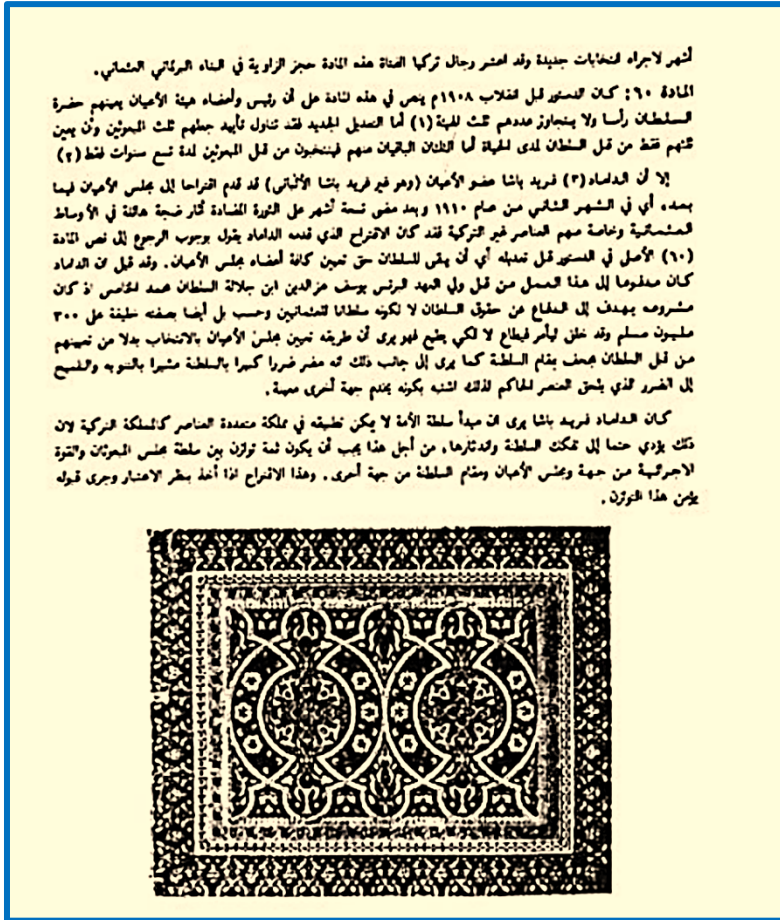 أشهر لاجراء انتخابات جديدة وقد اعتبر رجال تركيا الفتاة هذه المادة حجز الزاوية في البناء البرلماني العثماني .
المادة ٦٠ : كان الدستور قبل انقلاب ١٩٠٨م ينص في هذه المادة على أن رئيس وأعضاء هيئة الأعيان يعينهم حضرة
السلطان رأسا ولا يتجاوز عددهم ثلث الهيئة (١) أما التعديل الجديد فقد تناول تأييد جعلهم ثلث المبعوثين وأن يعين
ثلثهم فقط من قبل السلطان لمدى الحياة أما الثلثان الباقيان منهم فينتخبون من قبل المبعوثين لمدة تسع سنوات فقط (٢)
إلا أن الداماد (٣) فريد باشا عضو الأعيان (وهو غير فريد باشا الألباني) قد قدم اقتراحا إلى مجلس الأعيان فيما
بعد، أي في الشهر الثاني من عام ١٩١٠ وبعد مضى تسعة أشهر على الثورة المضادة أثار ضجة هائلة في الأوساط
العثمانية وخاصة منهم العناصر غير التركية فقد كان الاقتراح الذي قدمه الداماد يقول بوجوب الرجوع إلى نص المادة
(٦٠) الأصلي في الدستور قبل تعديله أي أن يبقى للسلطان حق تعيين كافة أعضاء مجلس الأعيان . وقد قيل ان الداماد
كان مدفوعا إلى هذا العمل من قبل ولي العهد البرنس يوسف عز الدين ابن جلالة السلطان محمد الخامس اذ كان
مشروعه يهدف إلى الدفاع عن حقوق السلطان لا لكونه سلطانا للعثمانيين وحسب بل أيضا بصفته خليفة على ٣٠٠
مليون مسلم وقد خلق ليأمر فيطاع لا لكي يطيع فهو يرى أن طريقه تعيين مجلس الأعيان بالانتخاب بدلا من تعيينهم
من قبل السلطان يجحف بمقام السلطنة كما يرى إلى جانب ذلك انه مضر ضررا كبيرا بالسلطنة مشيرا بالتنويه والتلميح
إلى الضرر الذي يلحق العنصر الحاكم لذلك اشتبه بكونه يخدم جهة أخرى معينة .
كان الداماد فريد باشا يرى ان مبدأ سلطة الأمة لا يمكن تطبيقه في مملكة متعددة العناصر كالمملكة التركية لان
ذلك يؤدي حتما إلى تفكك السلطنة واندثارها، من أجل هذا يجب أن يكون ثمة توازن بين سلطة مجلس المبعوثان والقوة
الاجرائية من جهة ومجلس الأعيان ومقام السلطنة من جهة أخرى . وهذا الاقتراح اذا أخذ بنظر الاعتبار وجرى قبوله
يؤمن هذا التوازن .